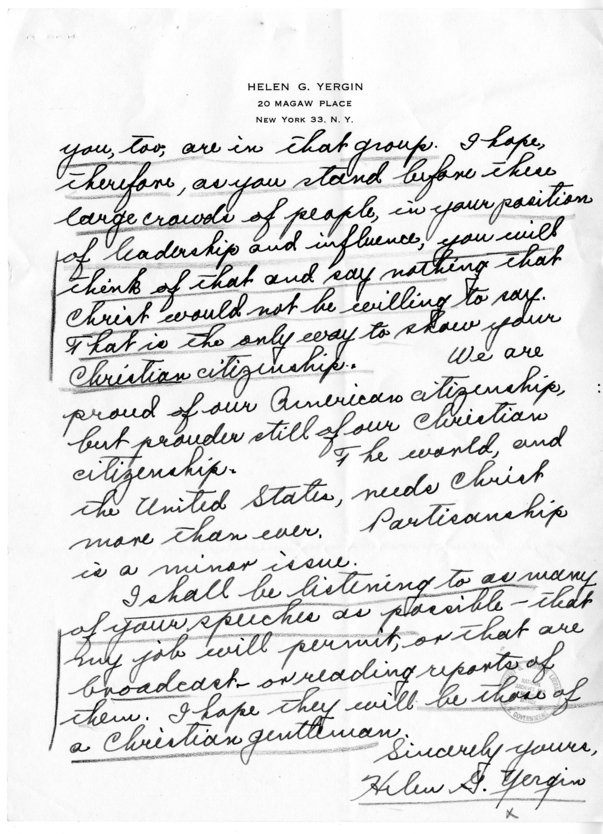 HELEN G. YERGIN
20 MAGAW PLACE
NEW YORK 33, N. Y.
you, too, are in that group. I hope,
therefore, as you stand before these
large crowds of people, in your position
of leadership and influence, you will
think of that and say nothing that
Christ would not be willing to say.
That is the only way to show your
Christian citizenship. We are
proud of our American citizenship,
but prouder still of our Christian
citizenship. The world, and
the United States, needs Christ
more than ever. Partisanship
is a minor issue.
I shall be listening to as many
of your speeches as possible - that
my job will permit, or that are
broadcast - or reading reports of
them. I hope they will be those of
a Christian gentleman.
Sincerely yours,
Helen G. Yergin
x